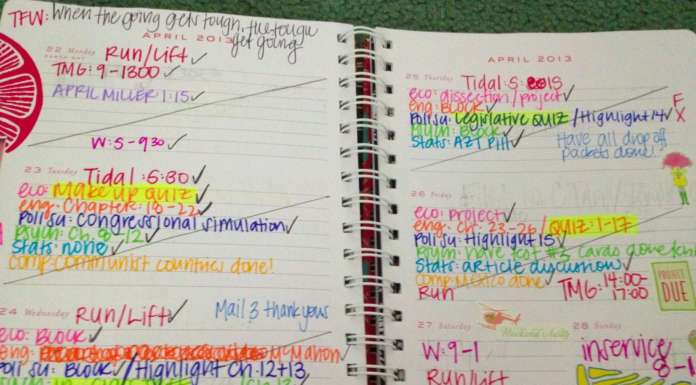 TFW: When the going gets tough, the tough
get going
APRIL 2013
22 Monday Run/Lift ✓
TMG: 9-1300 ✓
APRIL MILLER 1:15 ✓
W: 5-930 ✓
23 Tuesday Tidal :5:30 ✓
eco: Make up quiz ✓
eng: Chapter: 18-22 ✓
Poli su: congressional simulation ✓
Psych: Ch. 8-12 ✓
Stats: none ✓
comp: communist countries done!
24 Wednesday Run/Lift ✓ Mail 3 thank yous
eco: Block ✓
eng: McMahon
Poli su: Block ✓/Highlight Ch. 12+13
APRIL 2013
25 Thursday Tidal: 5:15
eco: dissection/project ✓
eng: Block ✓
Poli su: Legislative QUIZ ✓/Highlight 14 ✓ F
X
Psych: Block ✓
Stats: AZT Pill ✓ Have all drop off
packets done!
26 Friday
eco: Project ✓
eng: Ch. 23-26/QUIZ: 1-17
Poli su: Highlight 15 ✓
Psych: Have test #3 cards done
Stats: article discussions ✓
comp: Mexico done ✓
Run TMG: 14:00-
17:00
PROJECT
DUE
27 Saturday
28 Sunday
W: 9-1
inservice
8-1
Run/Lift